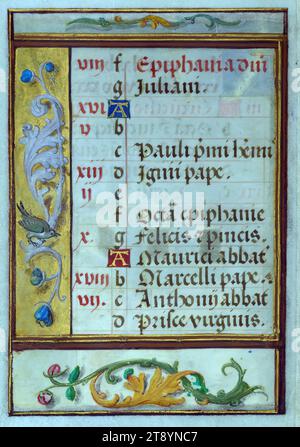 viij f Epiphania dñi
g Juliani.
xvi A
v b
c Pauli pm̃i hemi
xiij d Igini pape.
ij e
f Octã epiphanie
x. g Felicis ⁊ pincis.
A Maurici abbat
xviij b Marcelli pape.
vij. c Anthonij abbat
d Prisce virginis.
alamy
Image ID: 2T8YNC7
www.alamy.com